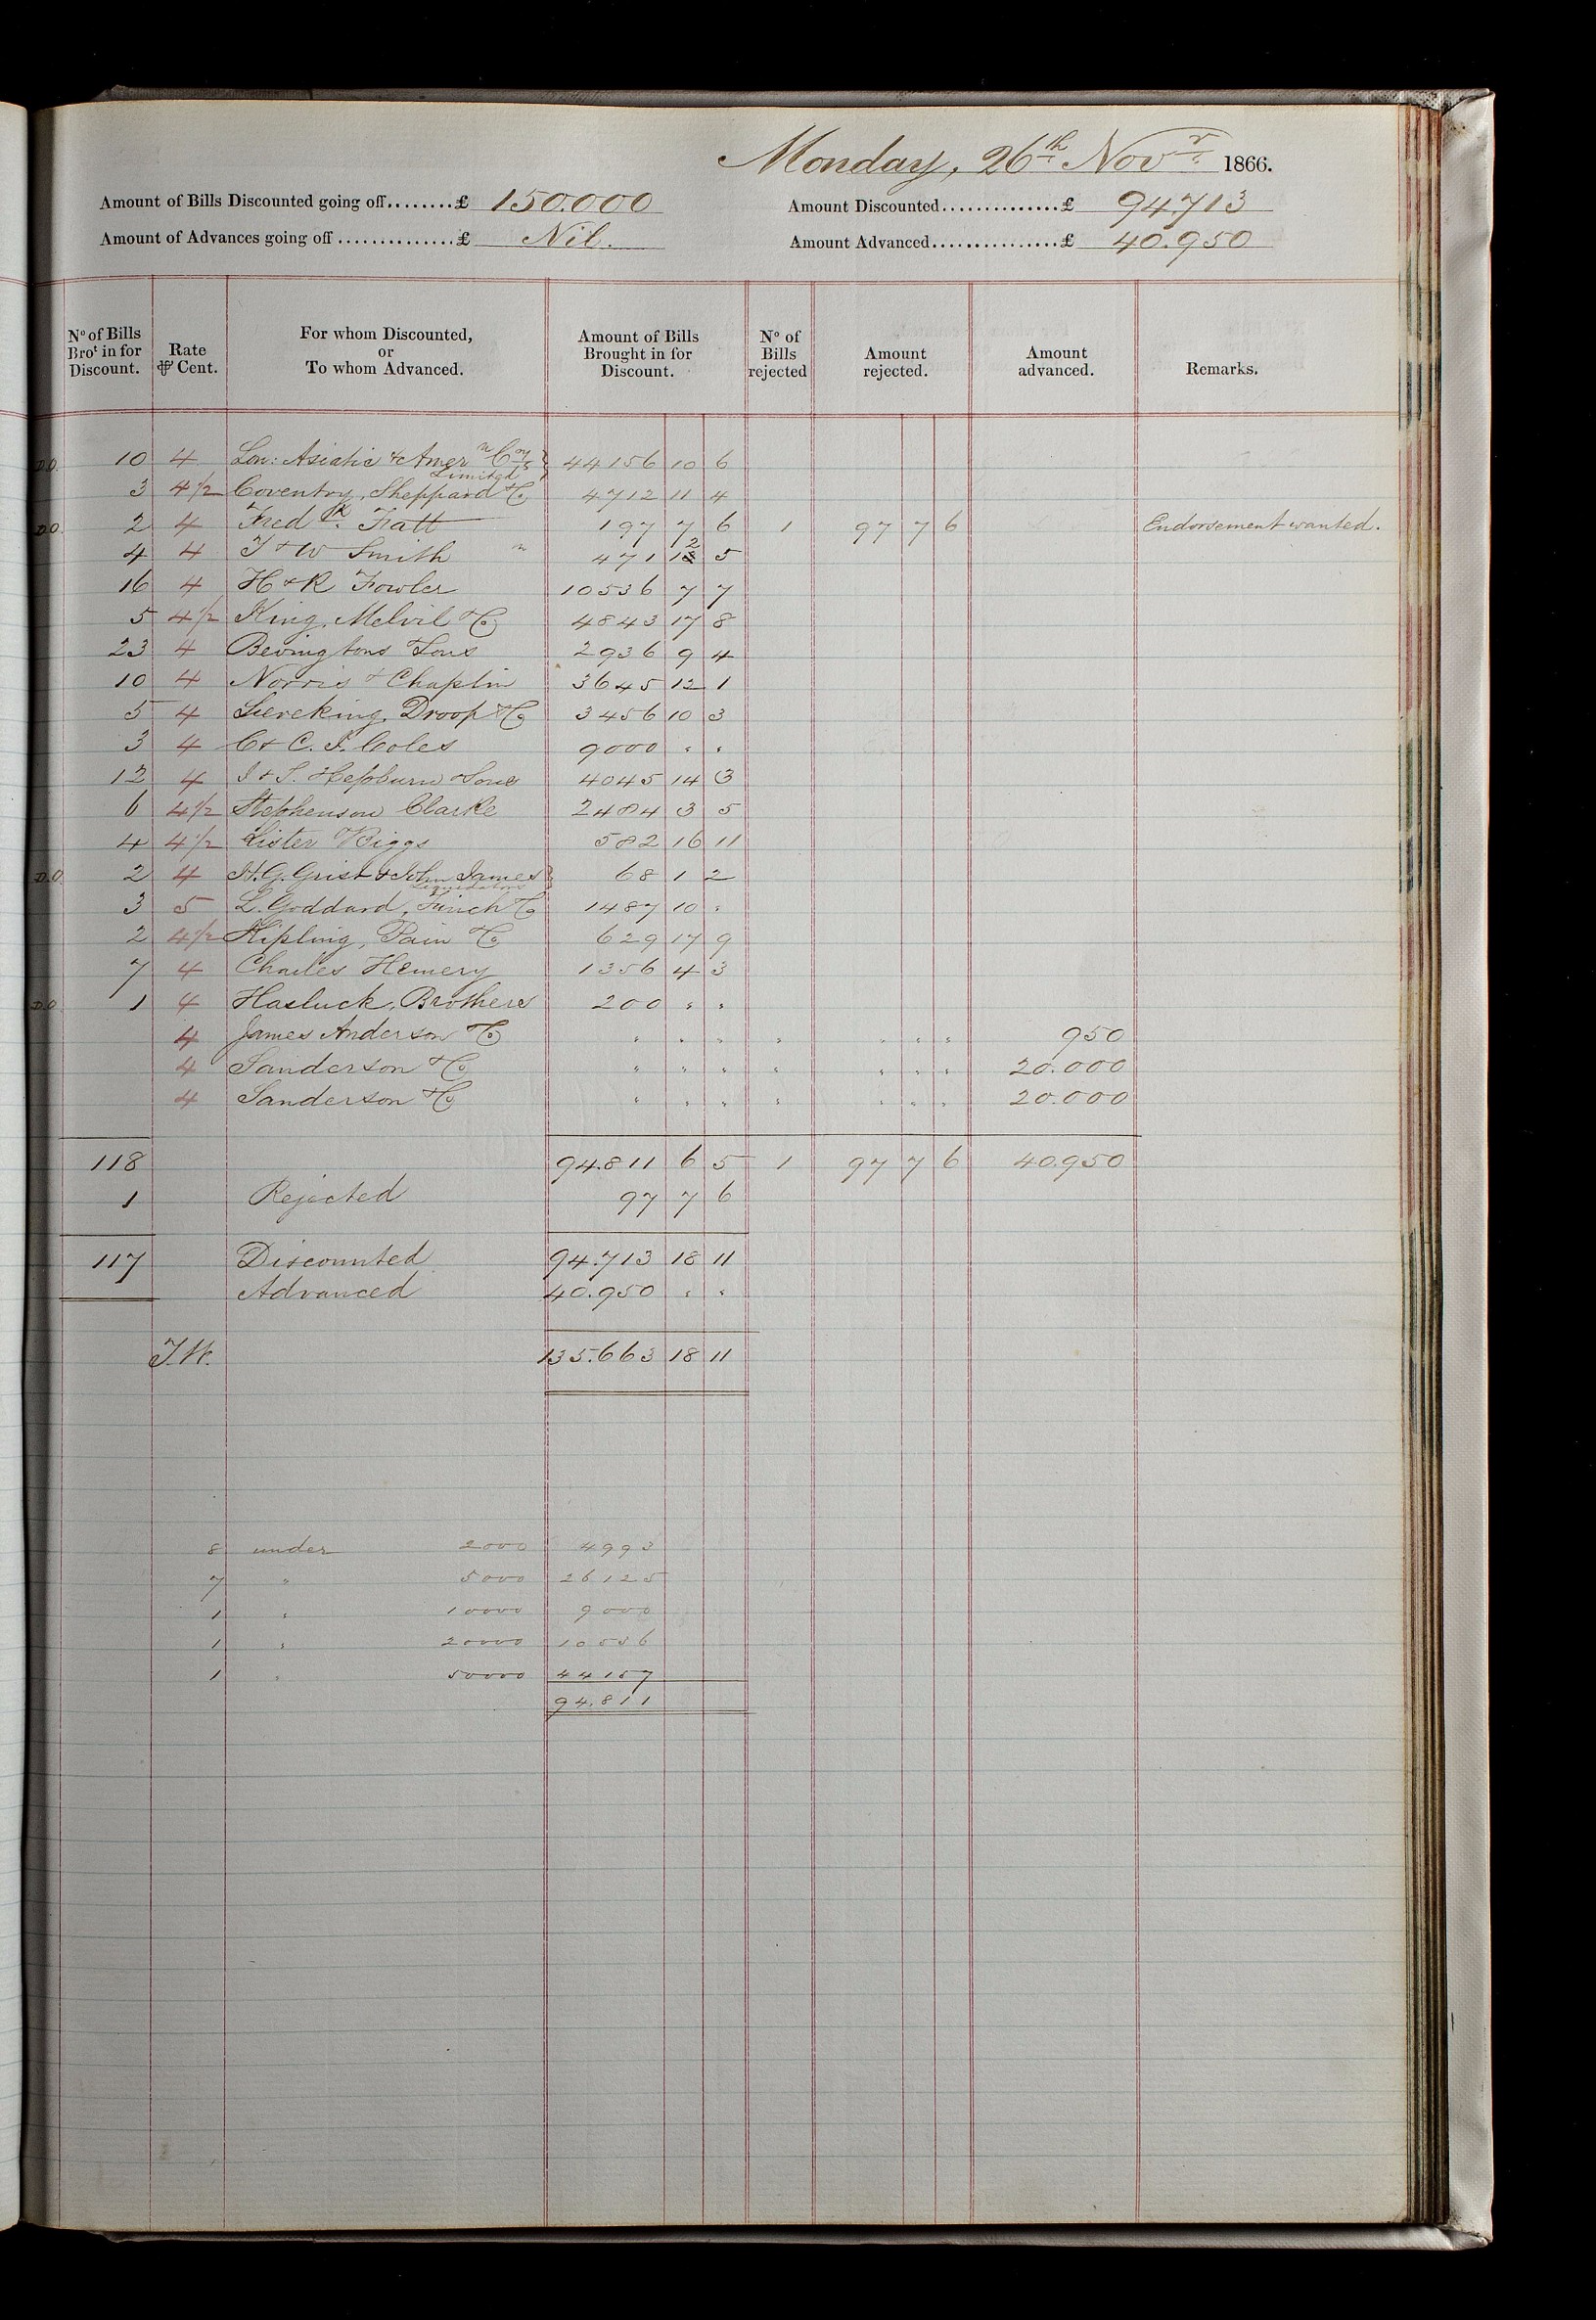 Monday, 26th Novr. 1866.
Amount of Bills Discounted going off........£ 150.000
Amount Discounted..............£ 94.713
Amount of Advances going off..............£ Nil.
Amount Advanced................£ 40.950
No of Bills Brot in for Discount. Rate ⅌ Cent. For whom Discounted, or To whom Advanced. Amount of Bills Brought in for Discount. No of Bills rejected Amount rejected. Amount advanced. Remarks.
D.O. 10 4 Lon: Asiatic & Amern Coy's } 44156 10 6
Limited
3 4½ Coventry, Sheppard & Co 4712 11 4
D.O. 2 4 Fredk. Fatt 197 7 6 1 97 7 6 Endorsement wanted.
4 4 T & W Smith 471 12 5
16 4 H & R Fowler 10536 7 7
5 4½ King, Melvil & Co 4843 17 8
23 4 Bevingtons & Sons 2936 9 4
10 4 Norris & Chaplin 3645 12 1
5 4 Sieveking, Droop & Co 3456 10 3
3 4 C & C. F. Coles 9000 " "
12 4 J & T. Hepburn & Sons 4045 14 3
6 4½ Stephenson Clarke 2484 3 5
4 4½ Lister & Biggs 582 16 11
D.O. 2 4 H.G. Grist & John James } 68 1 2
Liquidators
3 5 L. Goddard, Finch & Co 1487 10 "
2 4½ Kipling, Pain & Co 629 17 9
7 4 Charles Hemery 1356 4 3
D.O. 1 4 Hasluck, Brothers 200 " "
4 James Anderson & Co " " " " " " " 950
4 Sanderson & Co " " " " " " " 20.000
4 Sanderson & Co " " " " " " " 20.000
118 94.811 6 5 1 97 7 6 40.950
1 Rejected 97 7 6
117 Discounted 94.713 18 11
Advanced 40.950 " "
T.W. 135.663 18 11
8 under 2000 4993
7 " 5000 26125
1 " 10000 9000
1 " 20000 10536
1 " 50000 44157
94.811